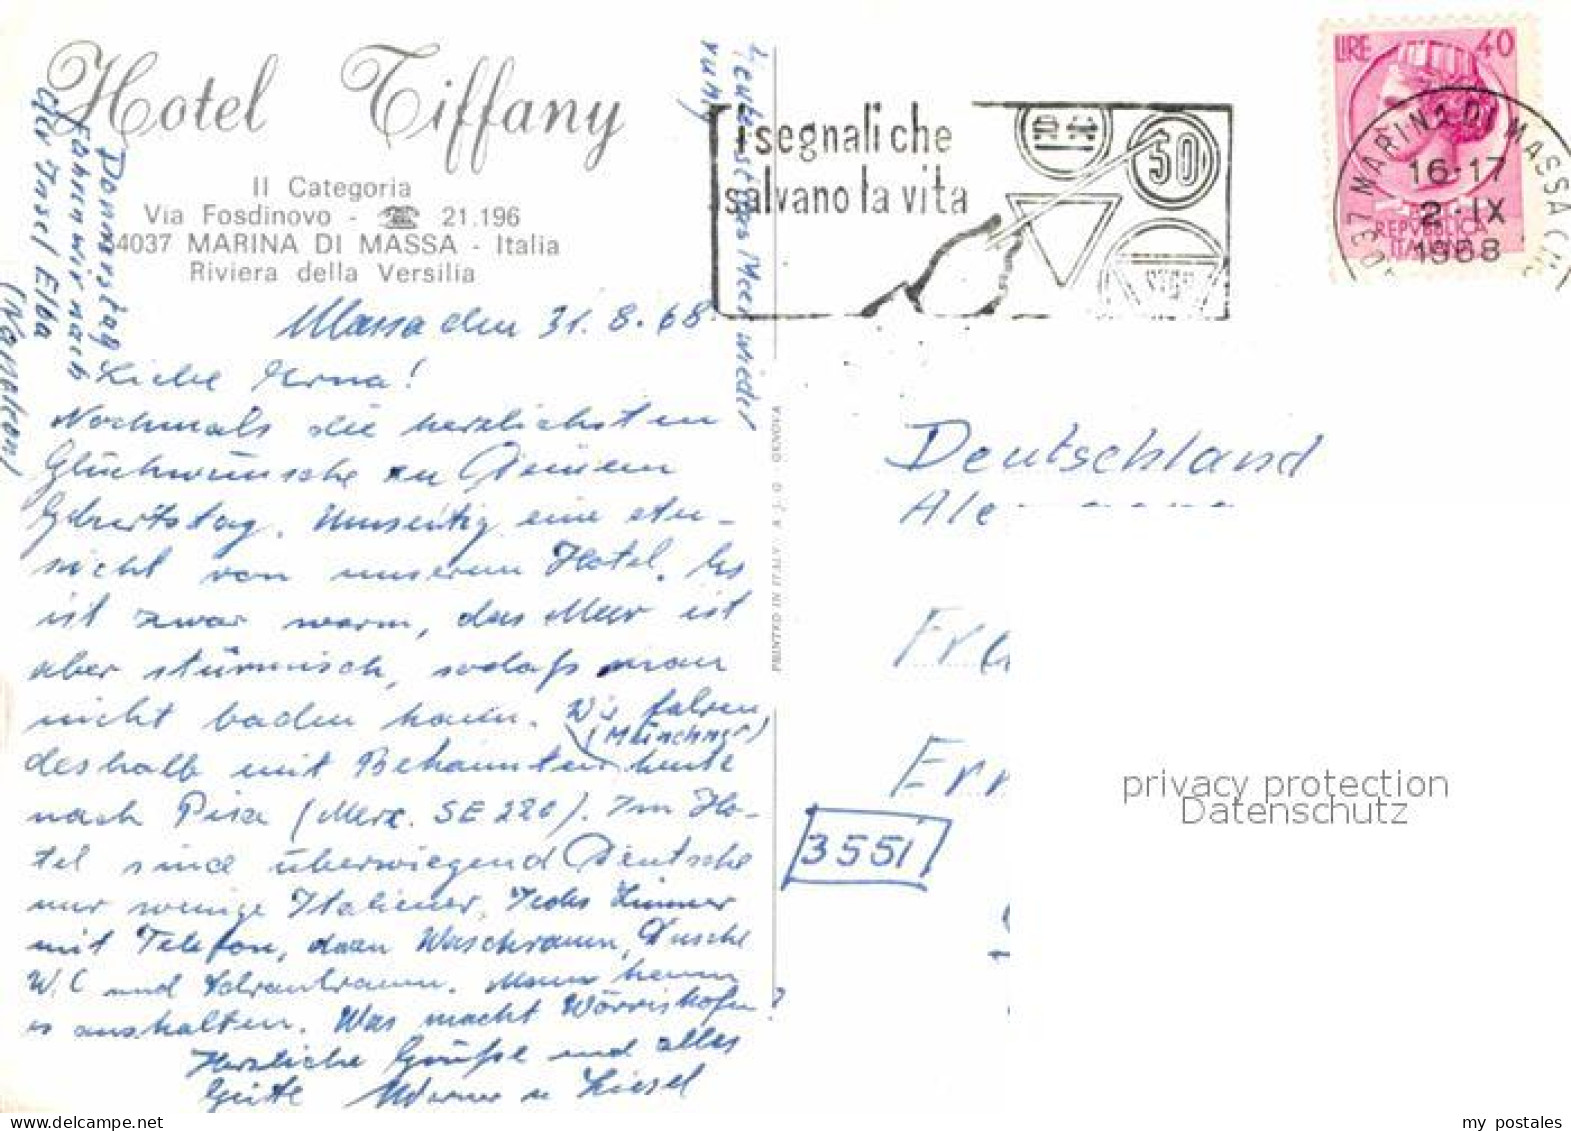 Hotel Tiffany
II Categoria
Via Fosdinovo - ☎ 21.196
54037 MARINA DI MASSA - Italia
Riviera della Versilia
Massa den 31.8.68.
Liebe Erna!
Nochmals die herzlichsten
Glückwünsche zu Deinem
Geburtstag. Umseitig eine An-
sicht von unserem Hotel. Es
ist zwar warm, das Meer ist
aber stürmisch, sodaß man
nicht baden kann. Wir fahren
(Münchner)
deshalb mit Bekannten heute
nach Pisa (Merc. SE 220). Im Ho-
tel sind überwiegend Deutsche
nur wenige Italiener. Jedes Zimmer
mit Telefon, dazu Waschraum, Dusche
W.C und Schrankraum. Man kann
es aushalten. Was macht Wörrishofen?
Herzliche Grüße und alles
Gute Werner u Liesel
Donnerstag
fahren wir nach
der Insel Elba
(Napoleon)
Heute ist das Meer wieder
ruhig
PRINTED IN ITALY
i segnali che
salvano la vita
50
STOP
LIRE 40
REPVBBLICA
ITALIANA
37 MARINA DI MASSA (M
16-17
2-IX
1968
Deutschland
Ale
Fra
Er
3551
privacy protection
Datenschutz
my postales